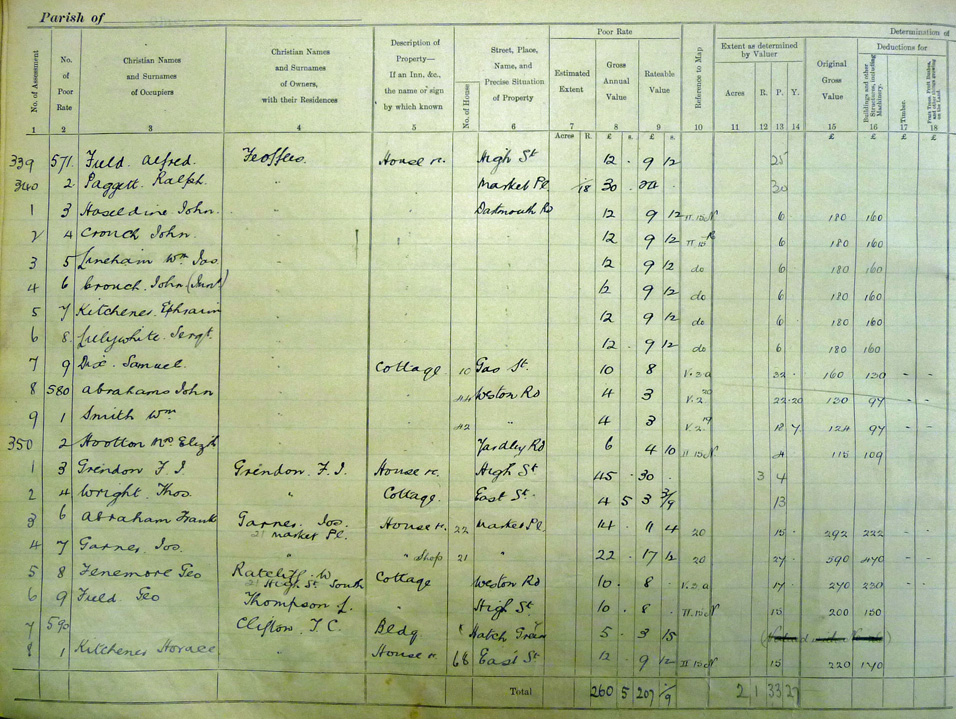 Parish of
No. of Assessment
No. of Poor Rate
Christian Names and Surnames of Occupiers
Christian Names and Surnames of Owners, with their Residences
Description of Property— If an Inn, &c., the name or sign by which known
No. of House
Street, Place, Name, and Precise Situation of Property
Poor Rate
Estimated Extent
Gross Annual Value
Rateable Value
Reference to Map
Extent as determined by Valuer
Acres R. P. Y.
Determination of
Original Gross Value
Deductions for
Buildings and other Structures, including Machinery.
Timber.
Fruit Trees, Fruit Bushes, and other things growing on the Land.
1 2 3 4 5 6 7 8 9 10 11 12 13 14 15 16 17 18
Acres R. £ s. £ s. £ £ £ £
339 571 Field Alfred. Feoffees. House &c. High St 12 . 9 12 25
340 2 Paggett Ralph. " Market Pl. 30 . 30
1 3 Haseldine John. " Dartmouth Rd 12 9 12 II.15 N 6 180 160
2 4 Crouch John. " 12 9 12 II.15 6 180 160
3 5 Lineham Wm Jas " 12 9 12 do 6 180 160
4 6 Crouch John (Junr) " 12 9 12 do 6 180 160
5 7 Kitchener Ephraim " 12 9 12 do 6 180 160
6 8 Lilywhite Sergt. " 12 9 12 do 6 180 160
7 9 Dix Samuel. " Cottage 10 Gas St. 10 8 V.3.a 22 . 160 130 - -
8 580 Abrahams John " 44 Weston Rd 4 3 V.2 20 22 20 130 97 - -
9 1 Smith Wm " 42 " 4 3 V.2 19 18 7 124 97 - -
350 2 Hootton Mrs Elizth " Yardley Rd 6 4 10 II 15 N 4 115 109
1 3 Grendon F. J. Grendon. F. J. House &c. High St 45 . 30 . 3 4
2 4 Wright Thos. " Cottage. East St. 4 5 3 3/9 13
3 6 Abraham Frank Garner. Jos. 21 Market Pl. House &c. 22 Market Pl. 14 . 11 4 20 15 . 292 222 - -
4 7 Garner. Jos. " " Shop 21 " 22 . 17 12 20 27 . 590 470 - -
5 8 Fenemore Geo Ratcliff. W. High St South Cottage Weston Rd 10 . 8 . V.3.a 17 . 270 230 - -
6 9 Field. Geo Thompson J. " High St 10 . 8 . II.15 N 15 200 150
7 590 Clifton. T. C. Bldg Hatch 5 . 3 15
8 1 Kitchener Horace " House &c. 68 East St 12 . 9 12 II 15 N 15 220 170
Total 260 5 207 1/9 2 1 33 27